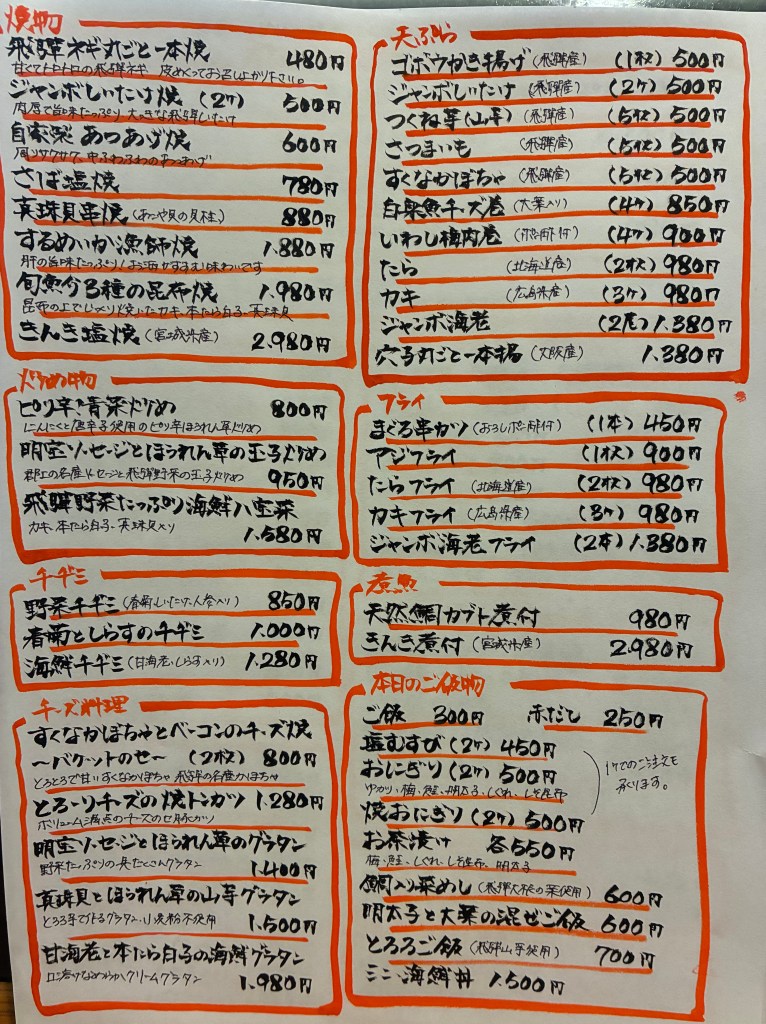 焼物
飛騨ネギ丸ごと一本焼 480円
甘くてトロトロの飛騨ネギ 皮めくってお召し上がり下さい。
ジャンボしいたけ焼 (2ケ) 500円
肉厚で旨味たっぷり 大きな飛騨しいたけ
自家製 あつあげ焼 600円
周りサクサク 中ふわふわのあつあげ
さば塩焼 780円
真珠貝串焼 (あこや貝の貝柱) 880円
するめいか漁師焼 1.880円
肝の旨味たっぷり!
旬魚介3種の昆布焼 1.980円
昆布の上でじっくり焼いたカキ、本たら白子、真珠貝
きんき塩焼 (宮城県産) 2.980円
炒め物
ピリ辛!青菜炒め 800円
にんにくと唐辛子使用のピリ辛ほうれん草炒め
明宝ソーセージとほうれん草の玉子炒め
郡上の名産ソーセージと飛騨野菜の玉子炒め 950円
飛騨野菜たっぷり海鮮八宝菜
カキ、本たら白子、真珠貝入り 1.580円
チヂミ
野菜チヂミ (春菊、しいたけ、人参入り) 850円
春菊としらすのチヂミ 1.000円
海鮮チヂミ (甘海老、しらす入り) 1.280円
チーズ料理
すくなかぼちゃとベーコンのチーズ焼
〜バケットのせ〜 (2枚) 800円
とろとろで甘いすくなかぼちゃ 飛騨の名産かぼちゃ
とろーりチーズの焼トンカツ 1.280円
ボリューム満点のチーズのせ豚カツ
明宝ソーセージとほうれん草のグラタン
野菜たっぷりの具だくさんグラタン 1.400円
真珠貝とほうれん草の山芋グラタン
とろろ芋で作るグラタン、小麦粉不使用 1.500円
甘海老と本たら白子の海鮮グラタン
口溶けなめらかクリームグラタン 1.980円
天ぷら
ゴボウかき揚げ (飛騨産) (1枚) 500円
ジャンボしいたけ (飛騨産) (2ケ) 500円
つくね芋(山芋) (飛騨産) (5枚) 500円
さつまいも (飛騨産) (5枚) 500円
すくなかぼちゃ (飛騨産) (5枚) 500円
白身魚チーズ巻 (大葉入り) (4ケ) 850円
いわし梅肉巻 (ポン酢付) (4ケ) 900円
たら (北海道産) (2枚) 980円
カキ (広島県産) (3ケ) 980円
ジャンボ海老 (2尾) 1.380円
穴子丸ごと一本揚 (大阪産) 1.380円
フライ
まぐろ串カツ (おろしポン酢付) (1本) 450円
アジフライ (1枚) 900円
たらフライ (北海道産) (2枚) 980円
カキフライ (広島県産) (3ケ) 980円
ジャンボ海老フライ (2本) 1.380円
煮魚
天然鯛カブト煮付 980円
きんき煮付 (宮城県産) 2.980円
本日のご飯物
ご飯 300円 赤だし 250円
塩むすび (2ケ) 450円
おにぎり (2ケ) 500円
ゆかり、梅、鮭、明太子、しぐれ、しそ昆布
1ケでのご注文も
承ります。
焼おにぎり (2ケ) 500円
お茶漬け 各550円
梅、鮭、しぐれ、しそ昆布、明太子
鯛入り菜めし (飛騨大根の葉使用) 600円
明太子と大葉の混ぜご飯 600円
とろろご飯 (飛騨山芋使用) 700円
ミニ海鮮丼 1.500円